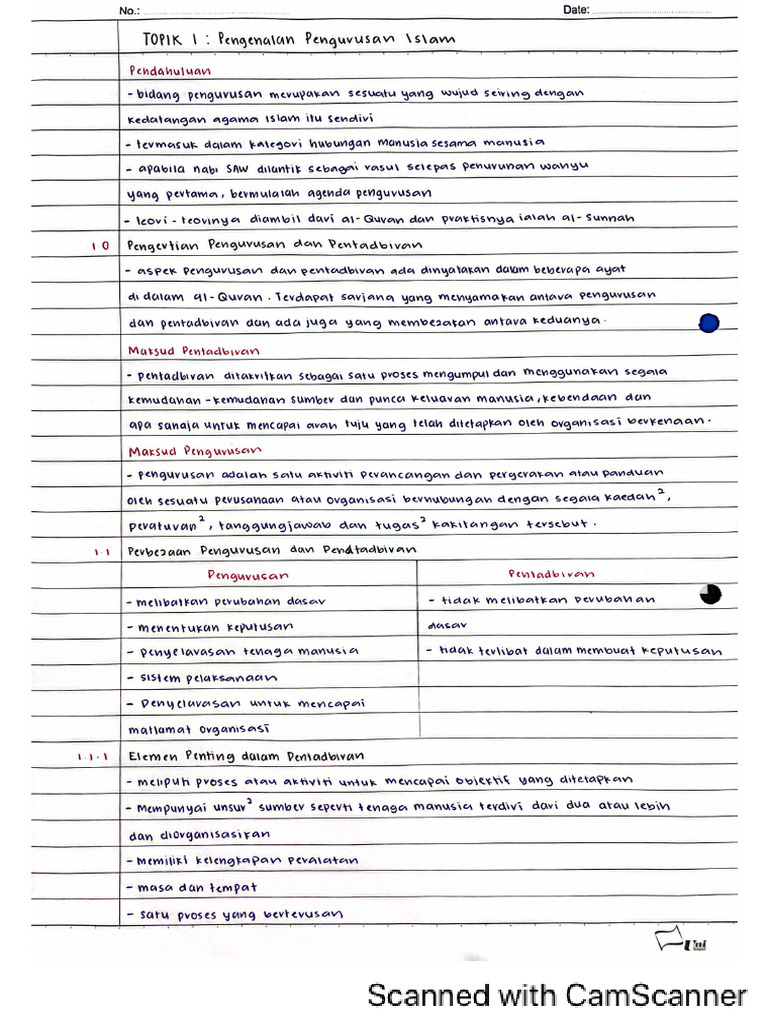 No.: Date:
TOPIK 1 : Pengenalan Pengurusan Islam
Pendahuluan
- bidang pengurusan merupakan sesuatu yang wujud seiring dengan
kedatangan agama Islam itu sendiri
- termasuk dalam kategori hubungan manusia sesama manusia
- apabila nabi SAW dilantik sebagai rasul selepas penurunan wahyu
yang pertama, bermulalah agenda pengurusan
- teori-teorinya diambil dari al-Quran dan praktisnya ialah al-Sunnah
1.0 Pengertian Pengurusan dan Pentadbiran
- aspek pengurusan dan pentadbiran ada dinyatakan dalam beberapa ayat
di dalam al-Quran. Terdapat sarjana yang menyamakan antara pengurusan
dan pentadbiran dan ada juga yang membezakan antara keduanya.
Maksud Pentadbiran
- pentadbiran ditakrifkan sebagai satu proses mengumpul dan menggunakan segala
kemudahan-kemudahan sumber dan punca keluaran manusia, kebendaan dan
apa sahaja untuk mencapai arah tuju yang telah ditetapkan oleh organisasi berkenaan.
Maksud Pengurusan
- pengurusan adalah satu aktiviti perancangan dan pergerakan atau panduan
oleh sesuatu perusahaan atau organisasi berhubungan dengan segala kaedah²,
peraturan², tanggungjawab dan tugas² kakitangan tersebut.
1.1 Perbezaan Pengurusan dan Pentadbiran
Pengurusan Pentadbiran
- melibatkan perubahan dasar - tidak melibatkan perubahan
- menentukan keputusan dasar
- penyelarasan tenaga manusia - tidak terlibat dalam membuat keputusan
- sistem pelaksanaan
- Penyelarasan untuk mencapai
matlamat organisasi
1.1.1 Elemen Penting dalam Pentadbiran
- meliputi proses atau aktiviti untuk mencapai objektif yang ditetapkan
- Mempunyai unsur² sumber seperti tenaga manusia terdiri dari dua atau lebih
dan diorganisasikan
- Memiliki kelengkapan peralatan
- masa dan tempat
- satu proses yang berterusan
Uni
Scanned with CamScanner